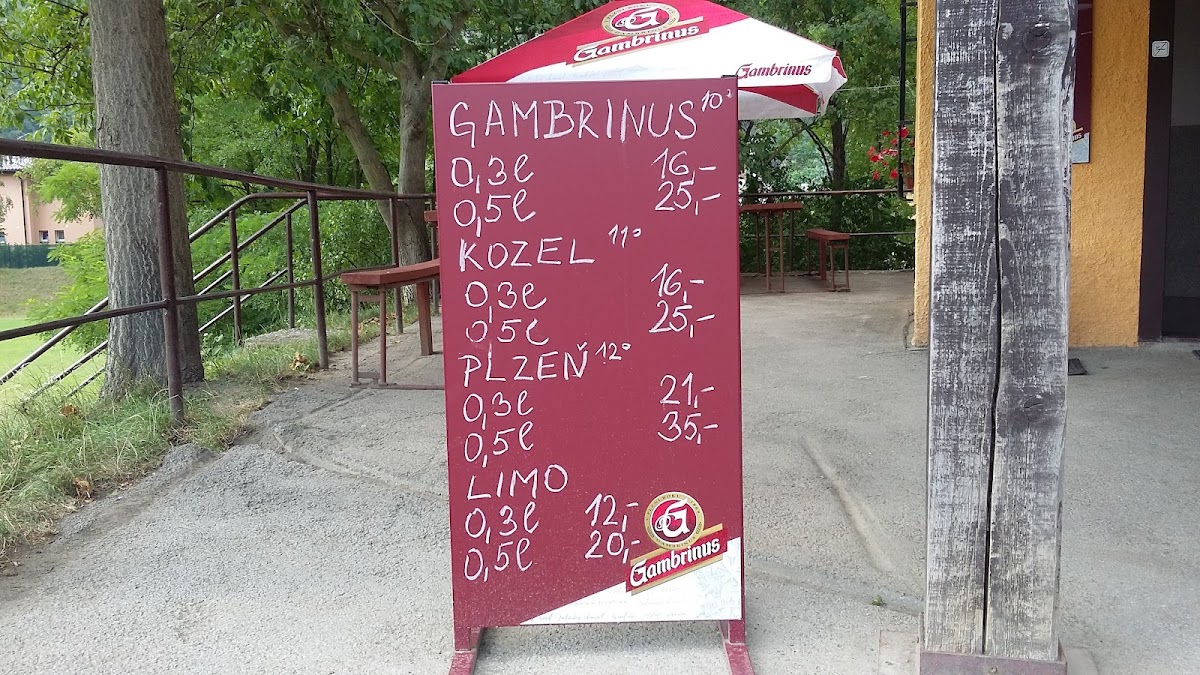 Gambrinus
Gambrinus
GAMBRINUS 10°
0,3l 16,-
0,5l 25,-
KOZEL 11°
0,3l 16,-
0,5l 25,-
PLZEŇ 12°
0,3l 21,-
0,5l 35,-
LIMO
0,3l 12,-
0,5l 20,-
G
Gambrinus